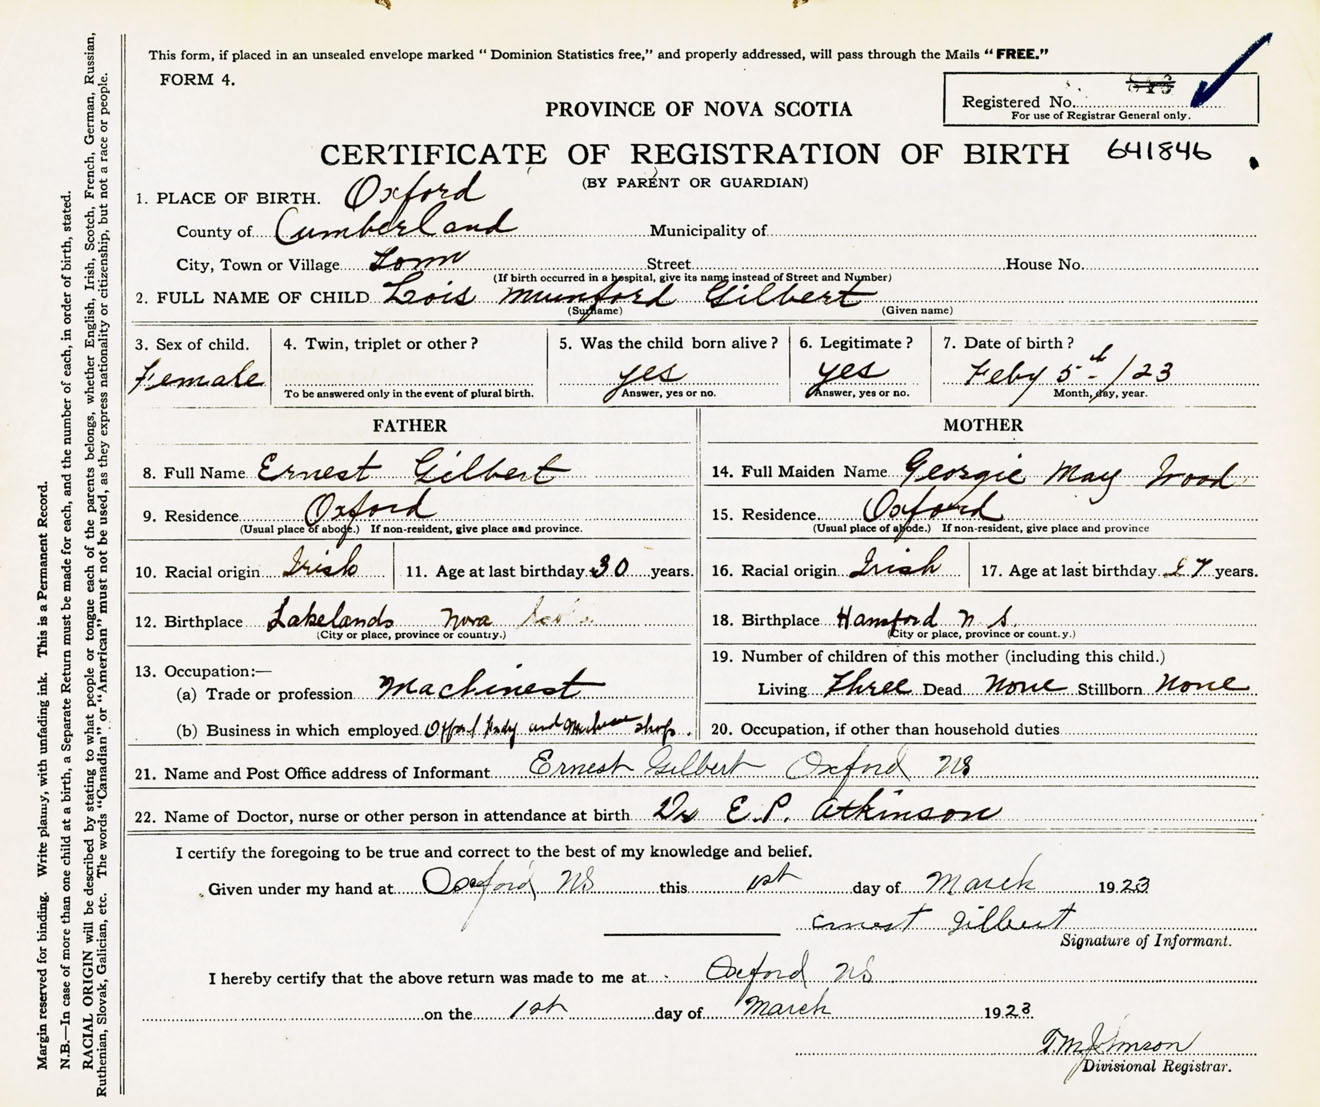 This form, if placed in an unsealed envelope marked "Dominion Statistics free," and properly addressed, will pass through the Mails "FREE."
FORM 4.
Registered No.
For use of Registrar General only.
PROVINCE OF NOVA SCOTIA
CERTIFICATE OF REGISTRATION OF BIRTH 641846
(BY PARENT OR GUARDIAN)
1. PLACE OF BIRTH. Oxford
County of Cumberland Municipality of
City, Town or Village Town Street House No.
(If birth occurred in a hospital, give its name instead of Street and Number)
2. FULL NAME OF CHILD Lois Mumford Gilbert
(Surname) (Given name)
3. Sex of child. 4. Twin, triplet or other? 5. Was the child born alive? 6. Legitimate? 7. Date of birth?
Female yes yes Feby 5th /23
To be answered only in the event of plural birth. Answer, yes or no. Answer, yes or no. Month, day, year.
FATHER
8. Full Name Ernest Gilbert
9. Residence Oxford
(Usual place of abode.) If non-resident, give place and province.
10. Racial origin Irish 11. Age at last birthday 30 years.
12. Birthplace Lakelands Nova
(City or place, province or country.)
13. Occupation:—
(a) Trade or profession Machinest
(b) Business in which employed and shop
MOTHER
14. Full Maiden Name Georgie May Wood
15. Residence Oxford
(Usual place of abode.) If non-resident, give place and province
16. Racial origin Irish 17. Age at last birthday 27 years.
18. Birthplace Hansford N S.
(City or place, province or count.y.)
19. Number of children of this mother (including this child.)
Living Three Dead None Stillborn None
20. Occupation, if other than household duties
21. Name and Post Office address of Informant Ernest Gilbert Oxford NS
22. Name of Doctor, nurse or other person in attendance at birth Dr E.P. Atkinson
I certify the foregoing to be true and correct to the best of my knowledge and belief.
Given under my hand at Oxford NS this 1st day of March 1923
Ernest Gilbert
Signature of Informant.
I hereby certify that the above return was made to me at Oxford NS
on the 1st day of March 1923
T.M. Johnson
Divisional Registrar.
Margin reserved for binding. Write plainly, with unfading ink. This is a Permanent Record.
N.B.—In case of more than one child at a birth, a Separate Return must be made for each, and the number of each, in order of birth, stated.
RACIAL ORIGIN will be described by stating to what people or tongue each of the parents belongs, whether English, Irish, Scotch, French, German, Russian,
Ruthenian, Slovak, Galician, etc. The words "Canadian" or "American" must not be used, as they express nationality or citizenship, but not a race or people.